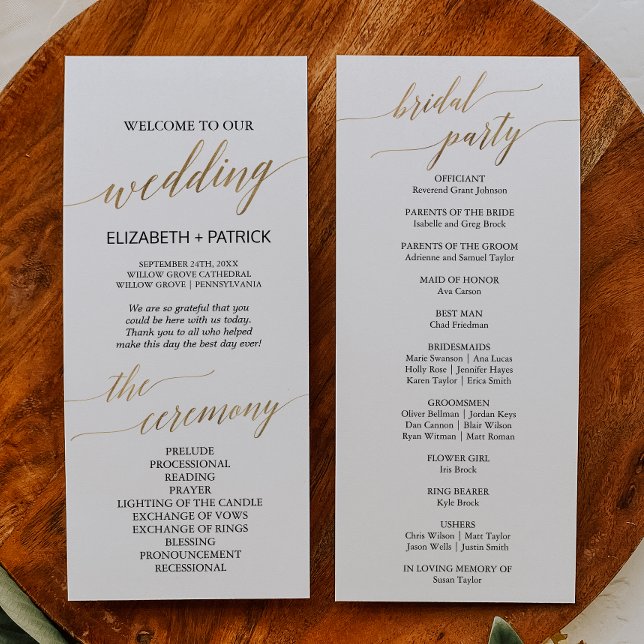 WELCOME TO OUR
wedding
ELIZABETH + PATRICK
SEPTEMBER 24TH, 20XX
WILLOW GROVE CATHEDRAL
WILLOW GROVE | PENNSYLVANIA
We are so grateful that you
could be here with us today.
Thank you to all who helped
make this day the best day ever!
the
ceremony
PRELUDE
PROCESSIONAL
READING
PRAYER
LIGHTING OF THE CANDLE
EXCHANGE OF VOWS
EXCHANGE OF RINGS
BLESSING
PRONOUNCEMENT
RECESSIONAL
bridal
party
OFFICIANT
Reverend Grant Johnson
PARENTS OF THE BRIDE
Isabelle and Greg Brock
PARENTS OF THE GROOM
Adrienne and Samuel Taylor
MAID OF HONOR
Ava Carson
BEST MAN
Chad Friedman
BRIDESMAIDS
Marie Swanson | Ana Lucas
Holly Rose | Jennifer Hayes
Karen Taylor | Erica Smith
GROOMSMEN
Oliver Bellman | Jordan Keys
Dan Cannon | Blair Wilson
Ryan Witman | Matt Roman
FLOWER GIRL
Iris Brock
RING BEARER
Kyle Brock
USHERS
Chris Wilson | Matt Taylor
Jason Wells | Justin Smith
IN LOVING MEMORY OF
Susan Taylor